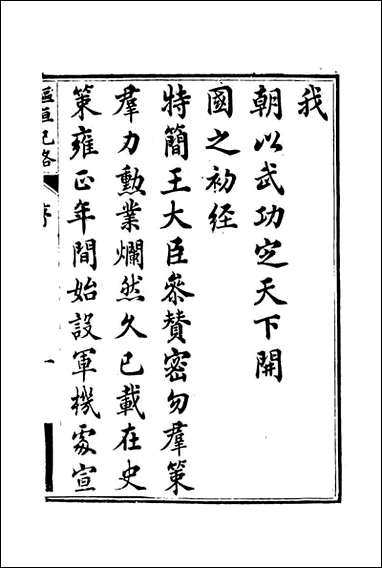 我
朝以武功定天下開
國之初経
特簡王大臣叅贊密勿羣策
羣力勳業爛然久已載在史
策雍正年間始設軍機處宣
樞垣記略
序
一